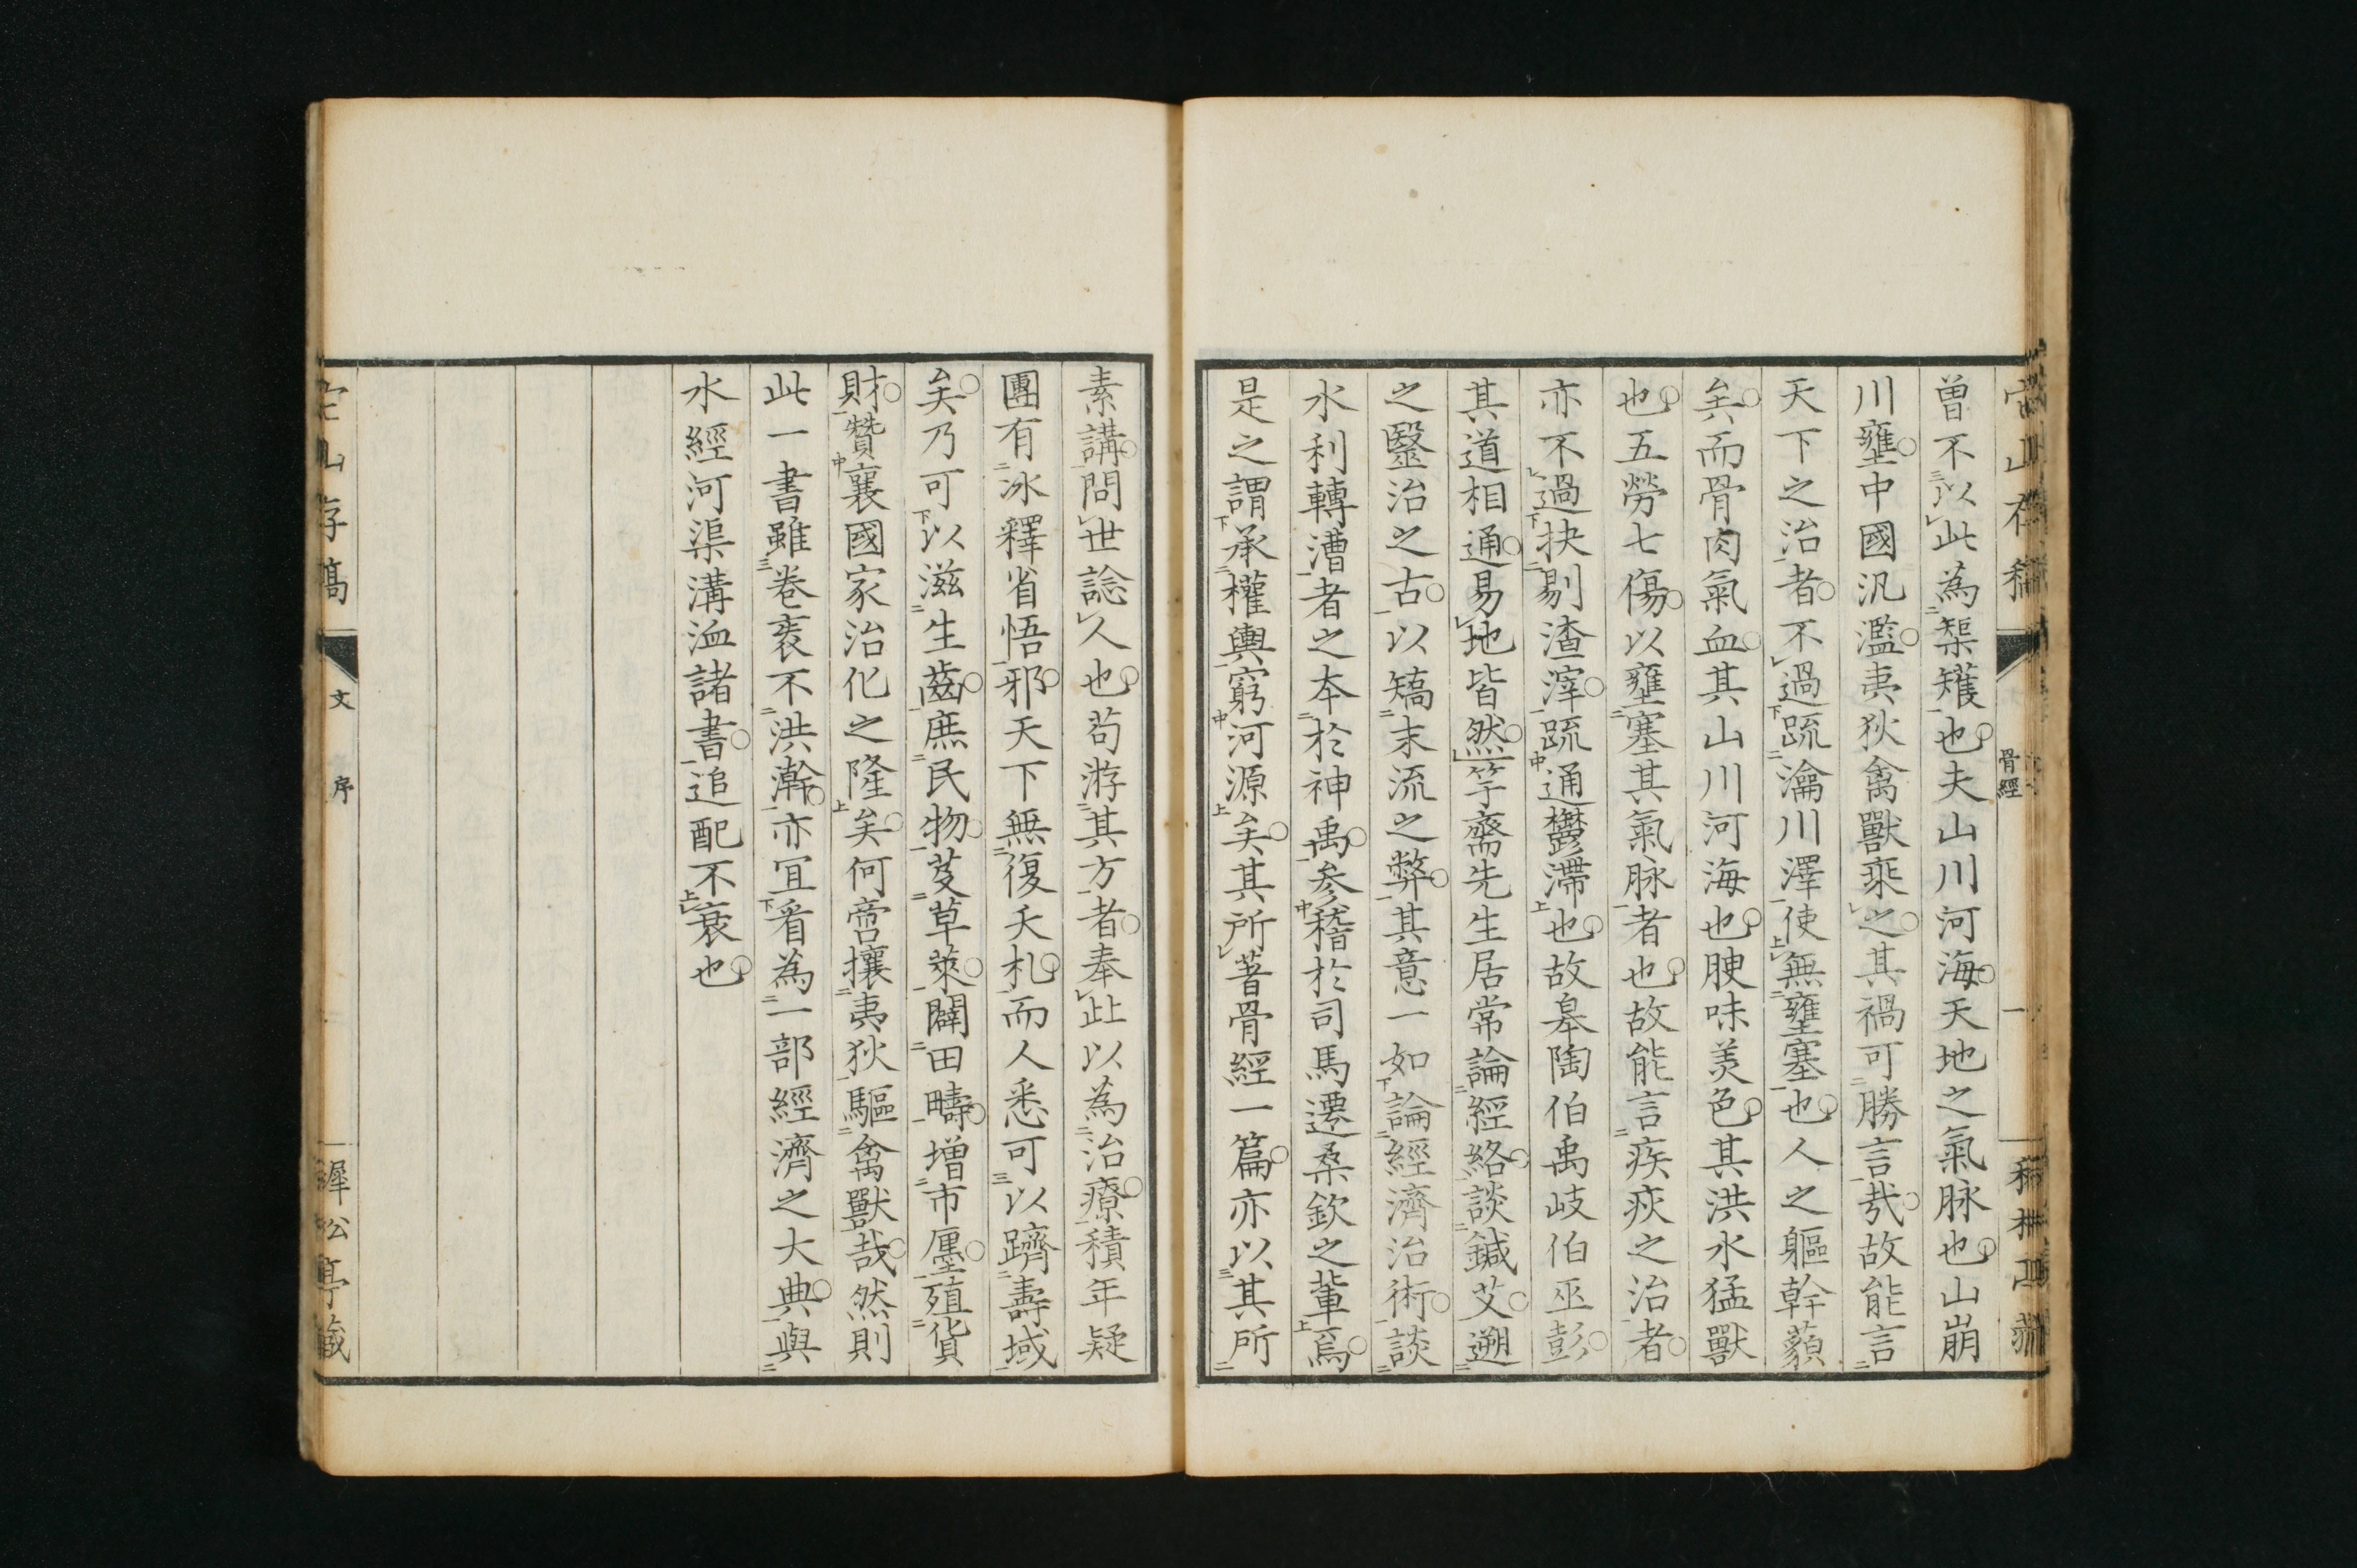 曽不以此為榘矱也夫山川河海天地之氣脉也山崩
川壅中國汎濫夷狄禽獸乘之其禍可勝言哉故能言
天下之治者不過疏瀹川澤使無壅塞也人之軀幹藐
矣而骨肉氣血其山川河海也腴味美色其洪水猛獸
也五勞七傷以壅塞其氣脉者也故能言疾疢之治者
亦不過抉剔渣滓疏通鬱滯也故皋陶伯禹岐伯巫彭
其道相通易地皆然竽齋先生居常論經絡談鍼艾遡
之毉治之古以矯末流之弊其意一如論經濟治術談
水利轉漕者之本於神禹參稽於司馬遷桑欽之軰焉
是之謂承權輿窮河源矣其所著骨經一篇亦以其所
素講問世諗人也苟游其方者奉此以為治療積年疑
團有冰釋省悟邪天下無復夭札而人悉可以躋壽域
矣乃可以滋生齒庶民物芟草萊闢田疇増市廛殖貨
財贊襄國家治化之隆矣何啻攘夷狄驅禽獸哉然則
此一書雖卷袠不洪瀚亦冝看為一部經濟之大典與
水經河渠溝洫諸書追配不衰也
骨經
一
山存稿
文
序
松亭藏